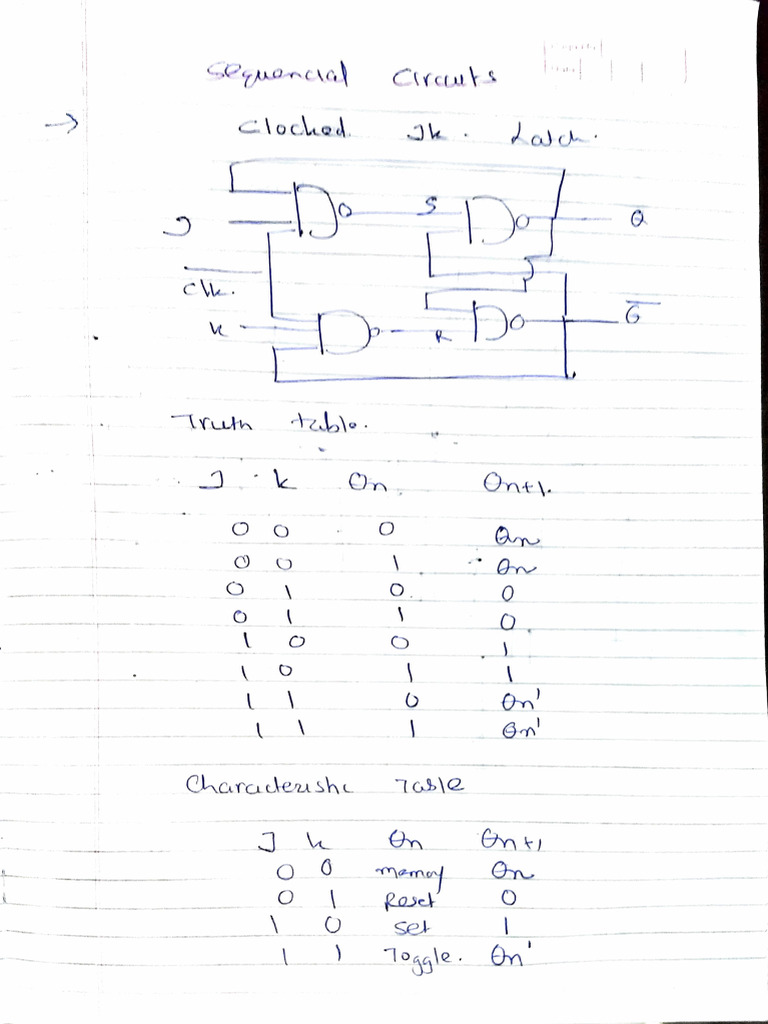 Sequencial Circuits
→ Clocked Jk. Latch.
S Q
J
Clk.
k R Q̅
Truth table.
J k Qn Qn+1.
0 0 0 Qn
0 0 1 Qn
0 1 0 0
0 1 1 0
1 0 0 1
1 0 1 1
1 1 0 Qn'
1 1 1 Qn'
Characteristic Table
J k Qn Qn+1
0 0 memory Qn
0 1 Reset 0
1 0 set 1
1 1 Toggle. Qn'